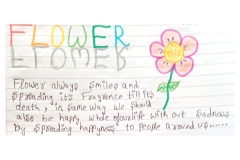 FLOWER
FLOWER
Flower always smiles and
spreading it's Fragrence till its
death, in same way we should
also be happy whole of our life with out sadness
by spreading happyness to people around us......